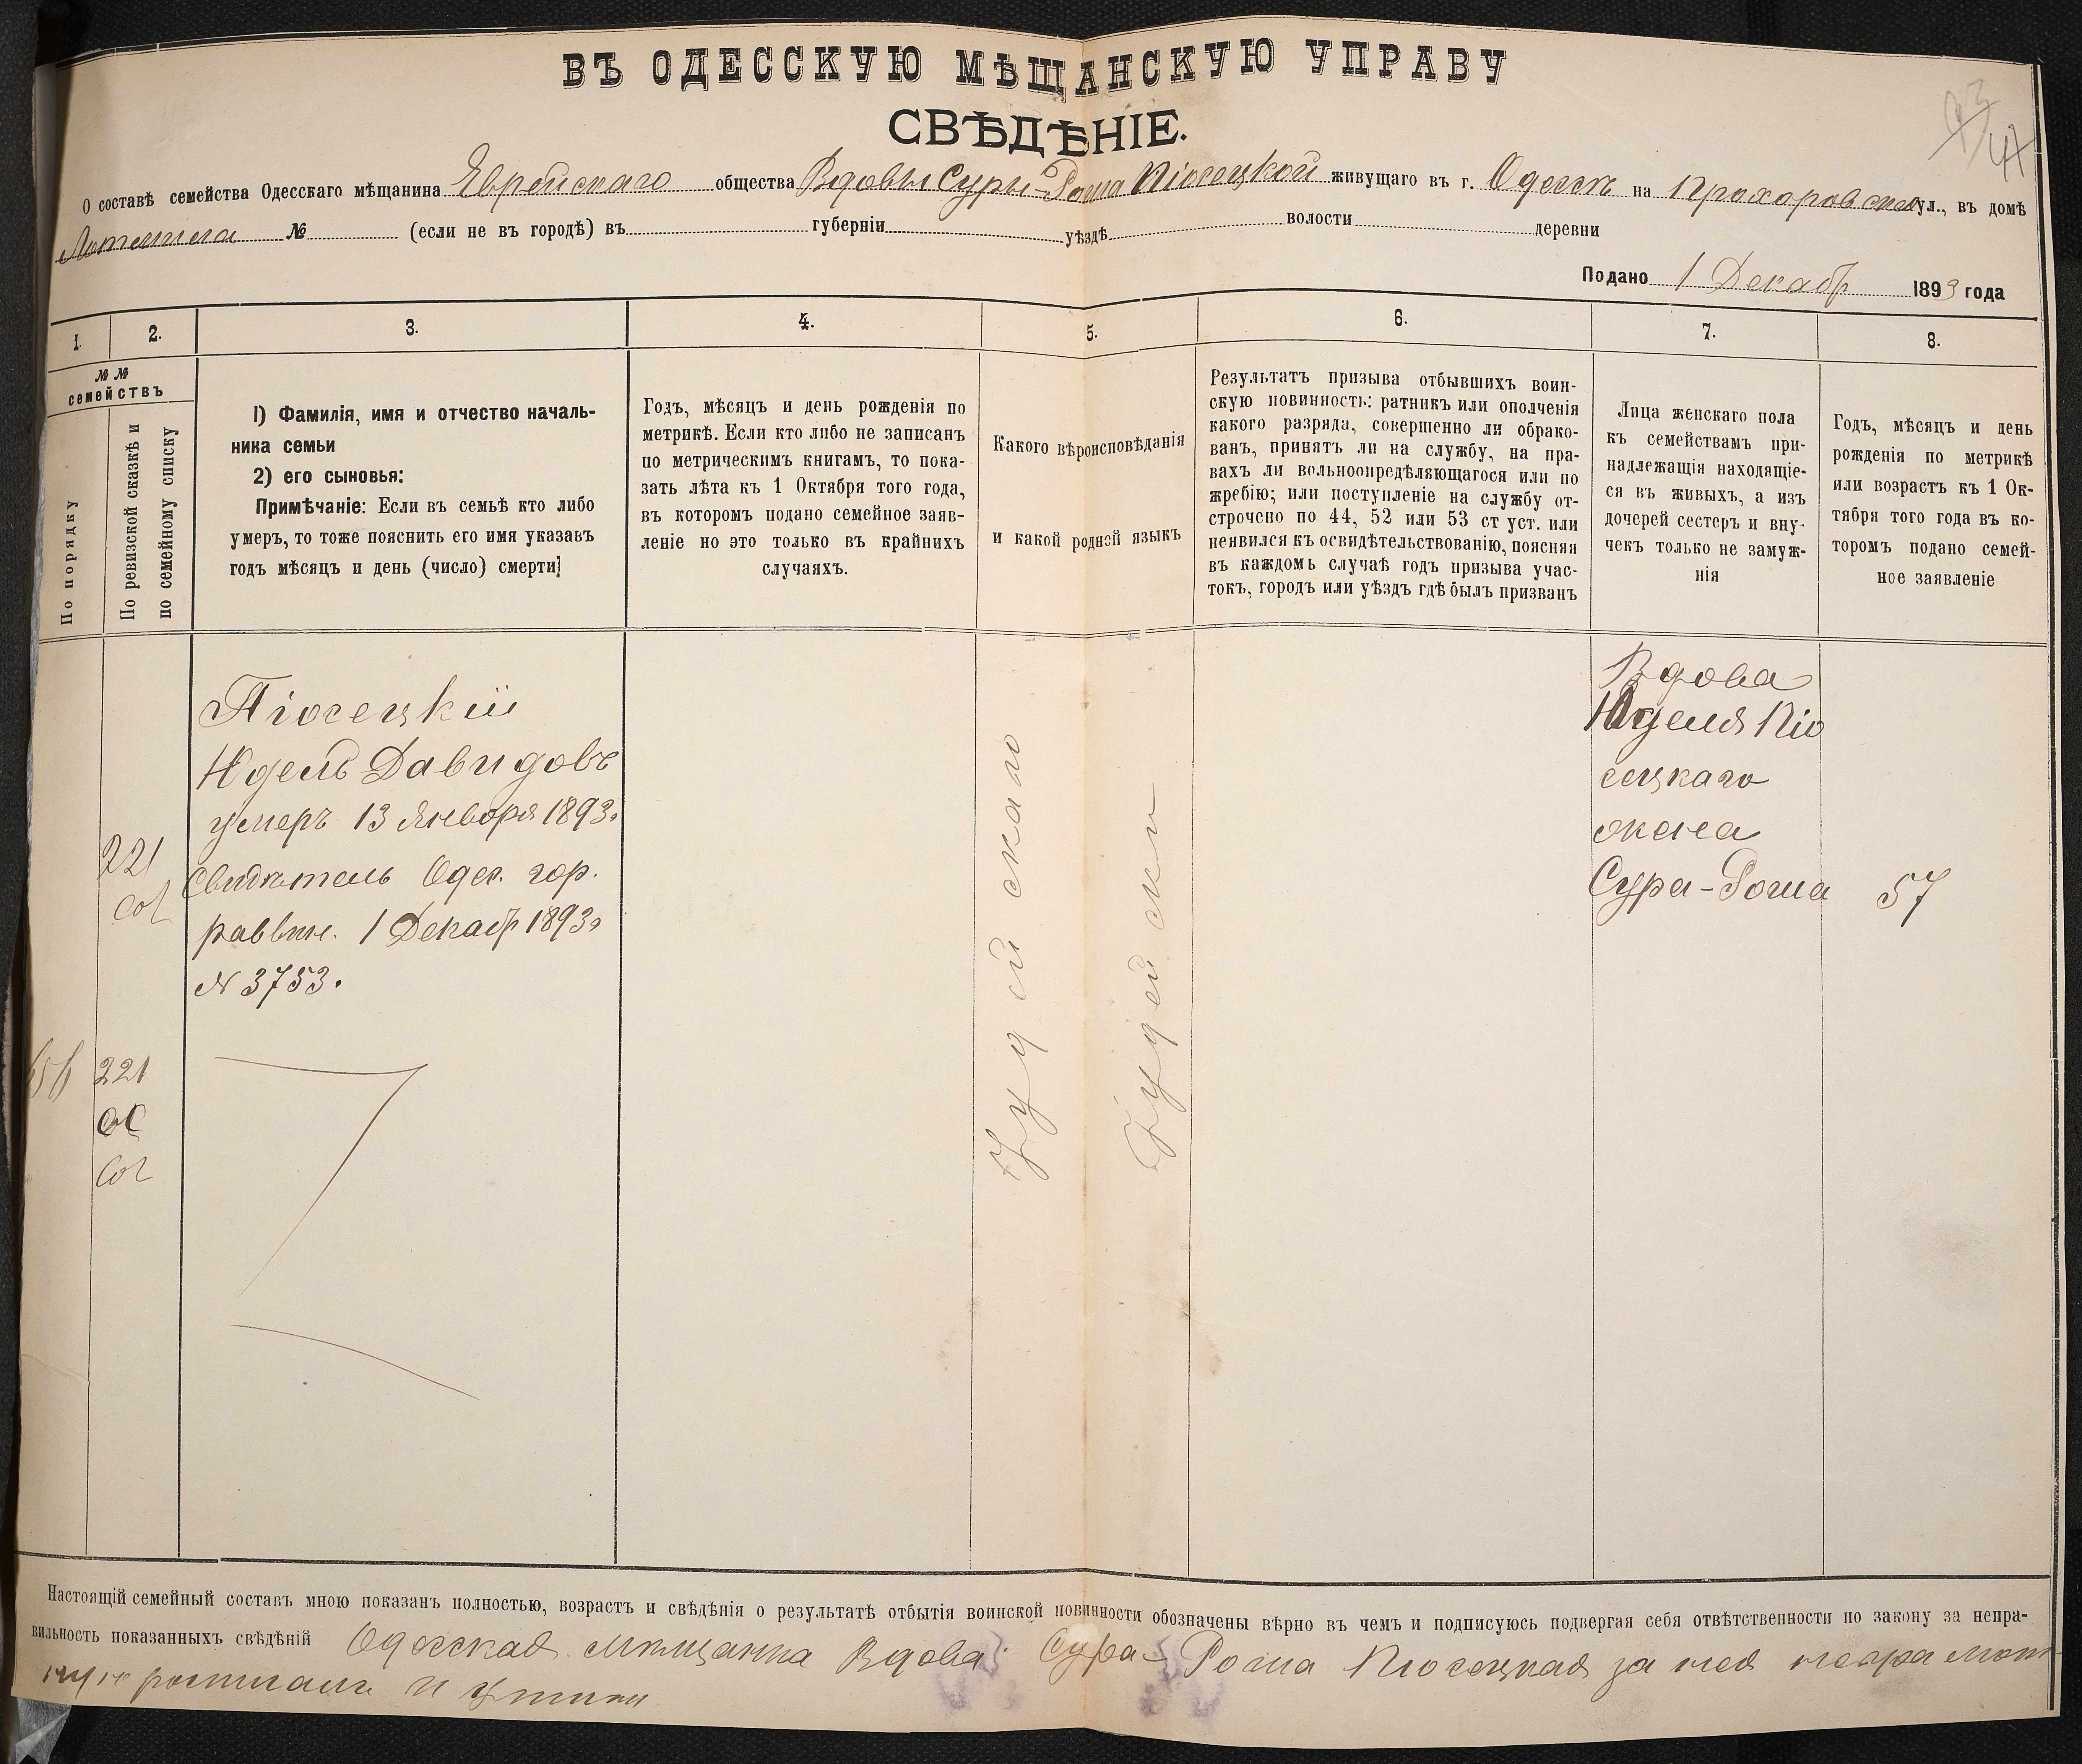 ВЪ ОДЕССКУЮ МѢЩАНСКУЮ УПРАВУ
СВѢДѢНІЕ.
О составѣ семейства Одесскаго мѣщанина Еврейскаго общества Вдовы Суры-Роша Піосецкой живущаго въ г. Одессѣ на Прохоровской ул., въ домѣ
№ (если не въ городѣ) въ губерніи уѣздѣ волости деревни
Подано 1 Декабр 1893 года
1. 2. 3. 4. 5. 6. 7. 8.
№ №
семействъ
По порядку
По ревизской сказкѣ и
по семейному списку
1) Фамилія, имя и отчество началь-
ника семьи
2) его сыновья:
Примѣчаніе: Если въ семьѣ кто либо
умеръ, то тоже пояснить его имя указавъ
годъ мѣсяцъ и день (число) смерти
Годъ, мѣсяцъ и день рожденія по
метрикѣ. Если кто либо не записанъ
по метрическимъ книгамъ, то пока-
зать лѣта къ 1 Октября того года,
въ котором подано семейное заяв-
леніе но это только въ крайнихъ
случаяхъ.
Какого вѣроисповѣданія
и какой родной языкъ
Результатъ призыва отбывшихъ воин-
скую повинность: ратникъ или ополченія
какого разряда, совершенно ли обрако-
ванъ, принятъ ли на службу, на пра-
вахъ ли вольноопредѣляющагося или по
жребію; или поступленіе на службу от-
строчено по 44, 52 или 53 ст уст. или
неявился къ освидѣтельствованію, поясняя
въ каждомъ случаѣ годъ призыва учас-
токъ, городъ или уѣздъ гдѣ былъ призванъ
Лица женскаго пола
къ семействамъ при-
надлежащія находящіе-
ся въ живыхъ, а изъ
дочерей сестеръ и вну-
чекъ только не замуж-
нія
Годъ, мѣсяцъ и день
рожденія по метрикѣ
или возрастъ къ 1 Ок-
тября того года въ ко-
торомъ подано семей-
ное заявленіе
221
Піосецкій
Юдель Давидовъ
умеръ 13 Января 1893г
Свидѣтель Одес. гор.
раввин. 1 Декабр 1893г
№ 3753.
221
Іудейскаго
Іудейски
Вдова
Юделя Піо
сецкаго
жена
Сура-Роша 57
Настоящій семейный составъ мною показанъ полностью, возрастъ и свѣдѣнія о результатѣ отбытія воинской повинности обозначены вѣрно въ чемъ и подписуюсь подвергая себя отвѣтственности по закону за непра-
вильность показанныхъ свѣдѣній Одесская мѣщанка Вдова Сура-Роша Піосецкая за нея неграмот
ную росписался